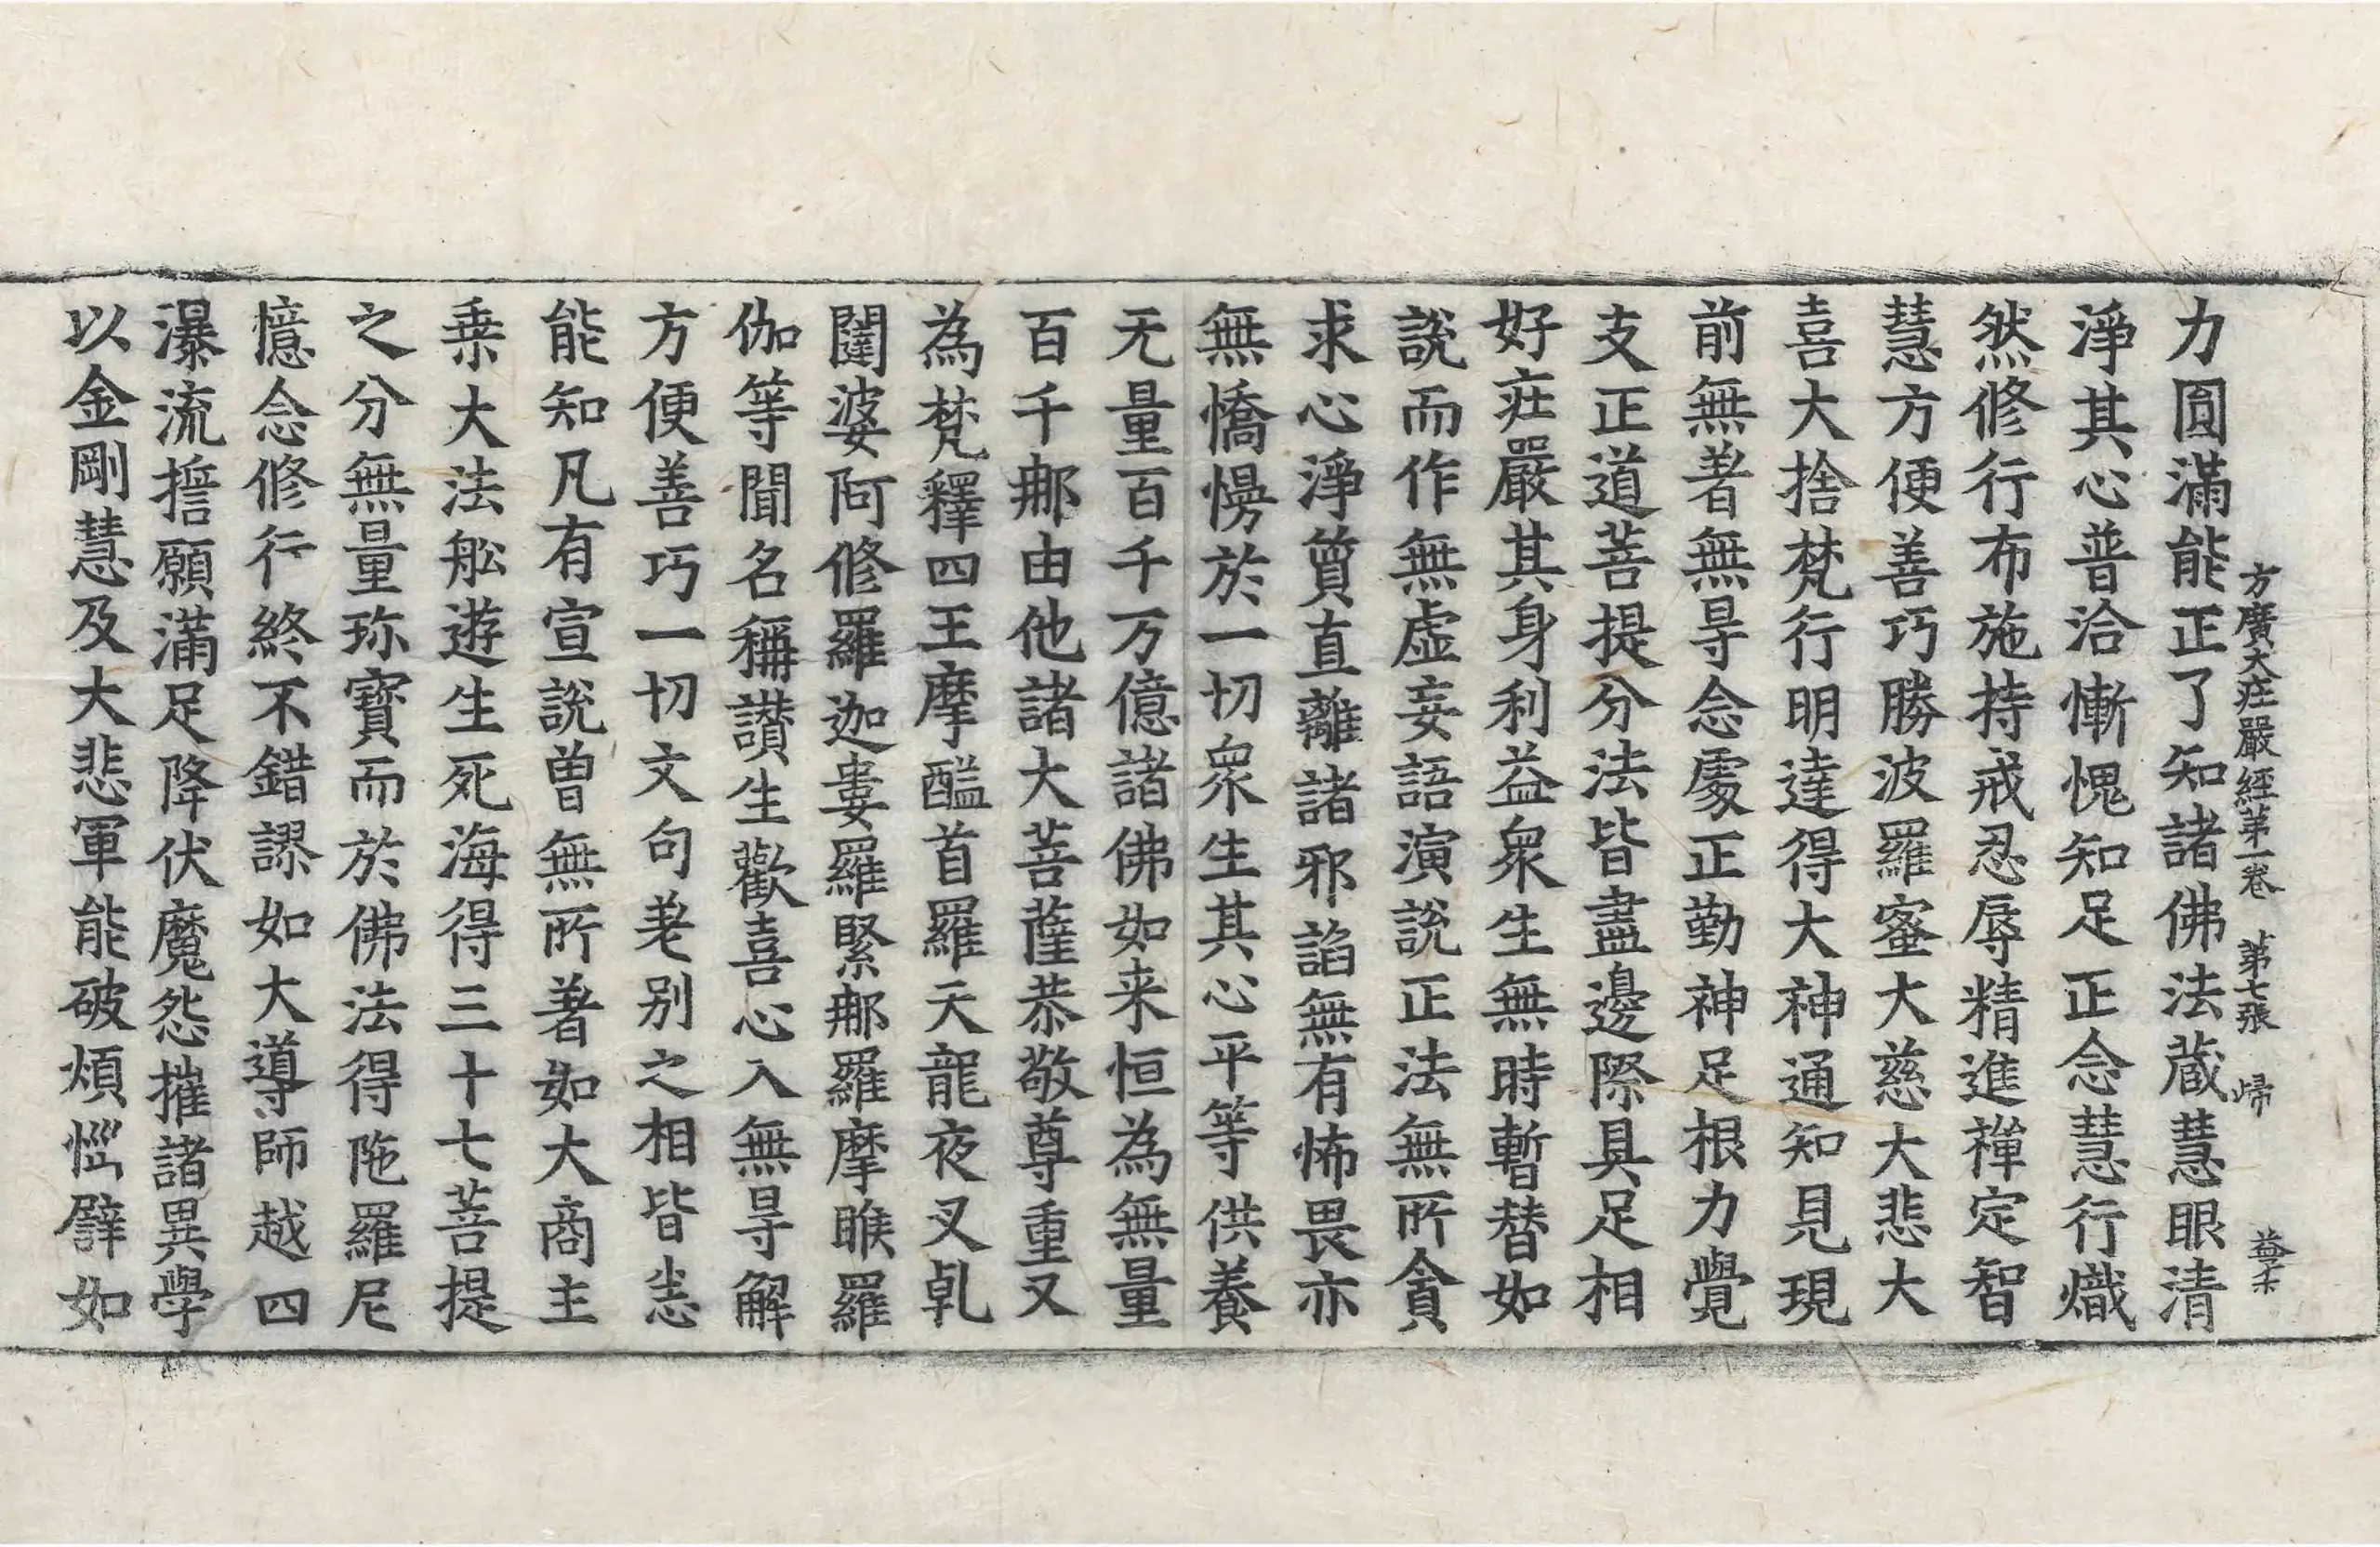 方廣大疰嚴經苐一卷 苐七張 帰
力圓滿能正了知諸佛法蔵慧眼清
淨其心普洽慚愧知足正念慧行熾
然修行布施持戒忍辱精進禪定智
慧方便善巧勝波羅蜜大慈大悲大
喜大捨梵行明達得大神通知見現
前無著無㝵念處正勤神足根力覺
支正道菩提分法皆盡邊際具足相
好疰嚴其身利益衆生無時暫替如
說而作無虛妄語演說正法無所貪
求心淨質直離諸邪諂無有怖畏亦
無憍慢於一切衆生其心平等供養
无量百千万億諸佛如来恒為無量
百千那由他諸大菩薩恭敬尊重又
為梵釋四王摩醯首羅天龍夜叉乹
闥婆阿修羅迦婁羅緊那羅摩睺羅
伽等聞名稱讃生歡喜心入無㝵解
方便善巧一切文句差别之相皆悉
能知凡有宣說曾無所著如大商主
乗大法舩遊生死海得三十七菩提
之分無量珎寳而於佛法得陁羅尼
憶念修行終不錯謬如大導師越四
瀑流誓願滿足降伏魔怨摧諸異學
以金剛慧及大悲軍能破煩惱譬如